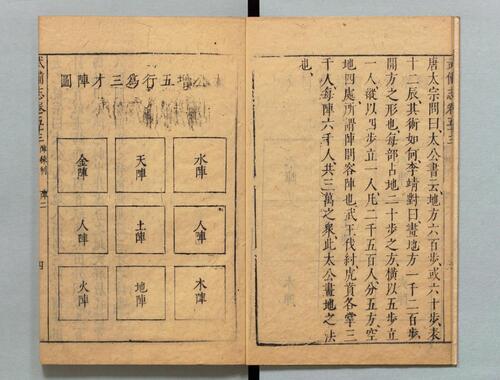 武備志卷五十三
唐太宗問曰太公書云地方六百步或六十步表
十二辰其術如何李靖對曰畫地方一千二百步
開方之形也每部占地二十步之方橫以五步立
一人縱以四步立一人凡二千五百人分五方空
地四處所謂陣間容陣也武王伐紂虎賁各掌三
千人每陣六千人共三萬之衆此太公畫地之法
也
太公增五行爲三才陣圖
水陣
天陣
金陣
人陣
土陣
人陣
木陣
地陣
火陣
武備志卷五十三 陣練制 陣二 四